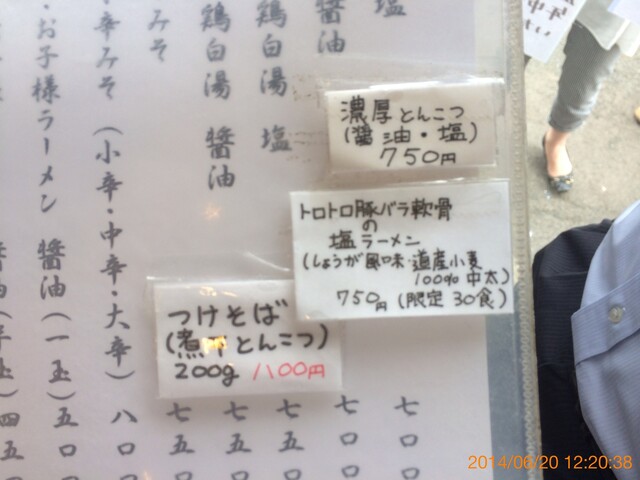 塩 七〇〇
醤油 七〇〇
鶏白湯 塩 七五〇
鶏白湯 醤油 七五〇
みそ 七五〇
辛みそ(小辛・中辛・大辛) 八〇〇
お子様ラーメン 醤油(一玉) 五〇〇
濃厚とんこつ
(醤油・塩)
750円
トロトロ豚バラ軟骨
の
塩ラーメン
(しょうが風味・道産小麦
100%中太)
750円(限定30食)
つけそば
(煮干とんこつ)
200g 八00円
2014/06/20 12:20:38